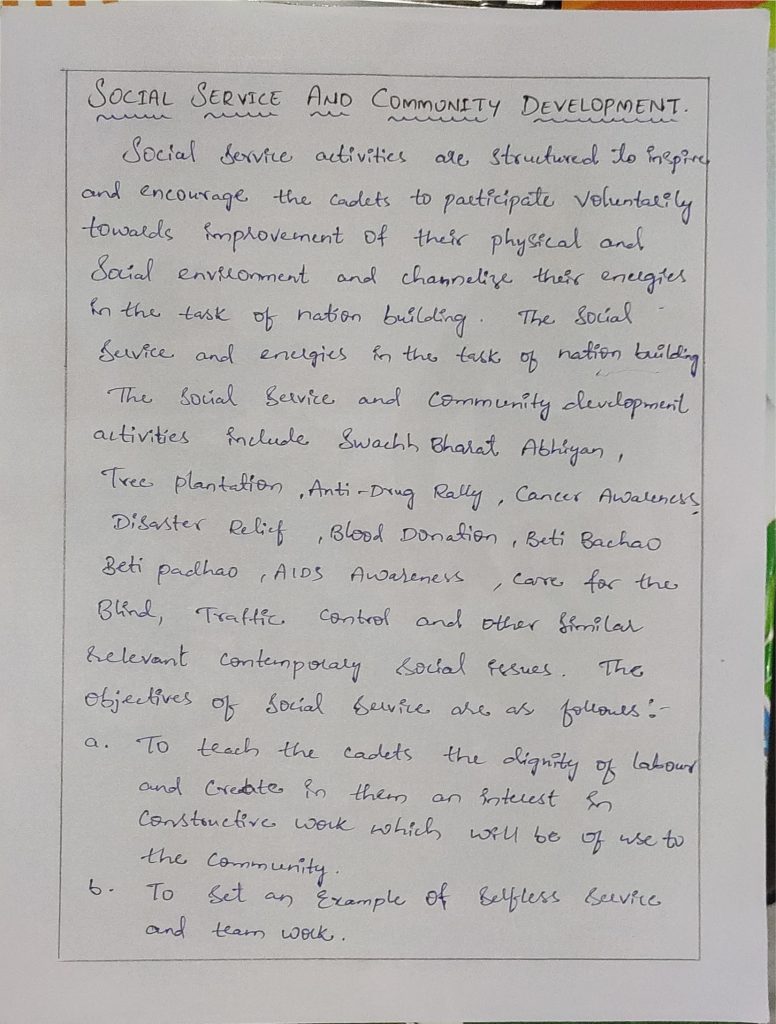 SOCIAL SERVICE AND COMMUNITY DEVELOPMENT.
Social Service activities are structured to inspire
and encourage the cadets to participate voluntarily
towards improvement of their physical and
Social environment and channelize their energies
in the task of nation building. The Social
Service and energies in the task of nation building
The Social Service and Community development
activities include Swachh Bharat Abhiyan,
Tree plantation, Anti-Drug Rally, Cancer Awareness,
Disaster Relief, Blood Donation, Beti Bachao
Beti padhao, AIDS Awareness, care for the
Blind, Traffic control and other similar
relevant contemporary social issues. The
objectives of Social Service are as follows:-
a. To teach the cadets the dignity of labour
and Create in them an interest in
Constructive work which will be of use to
the community.
b. To Set an Example of Selfless Service
and team work.